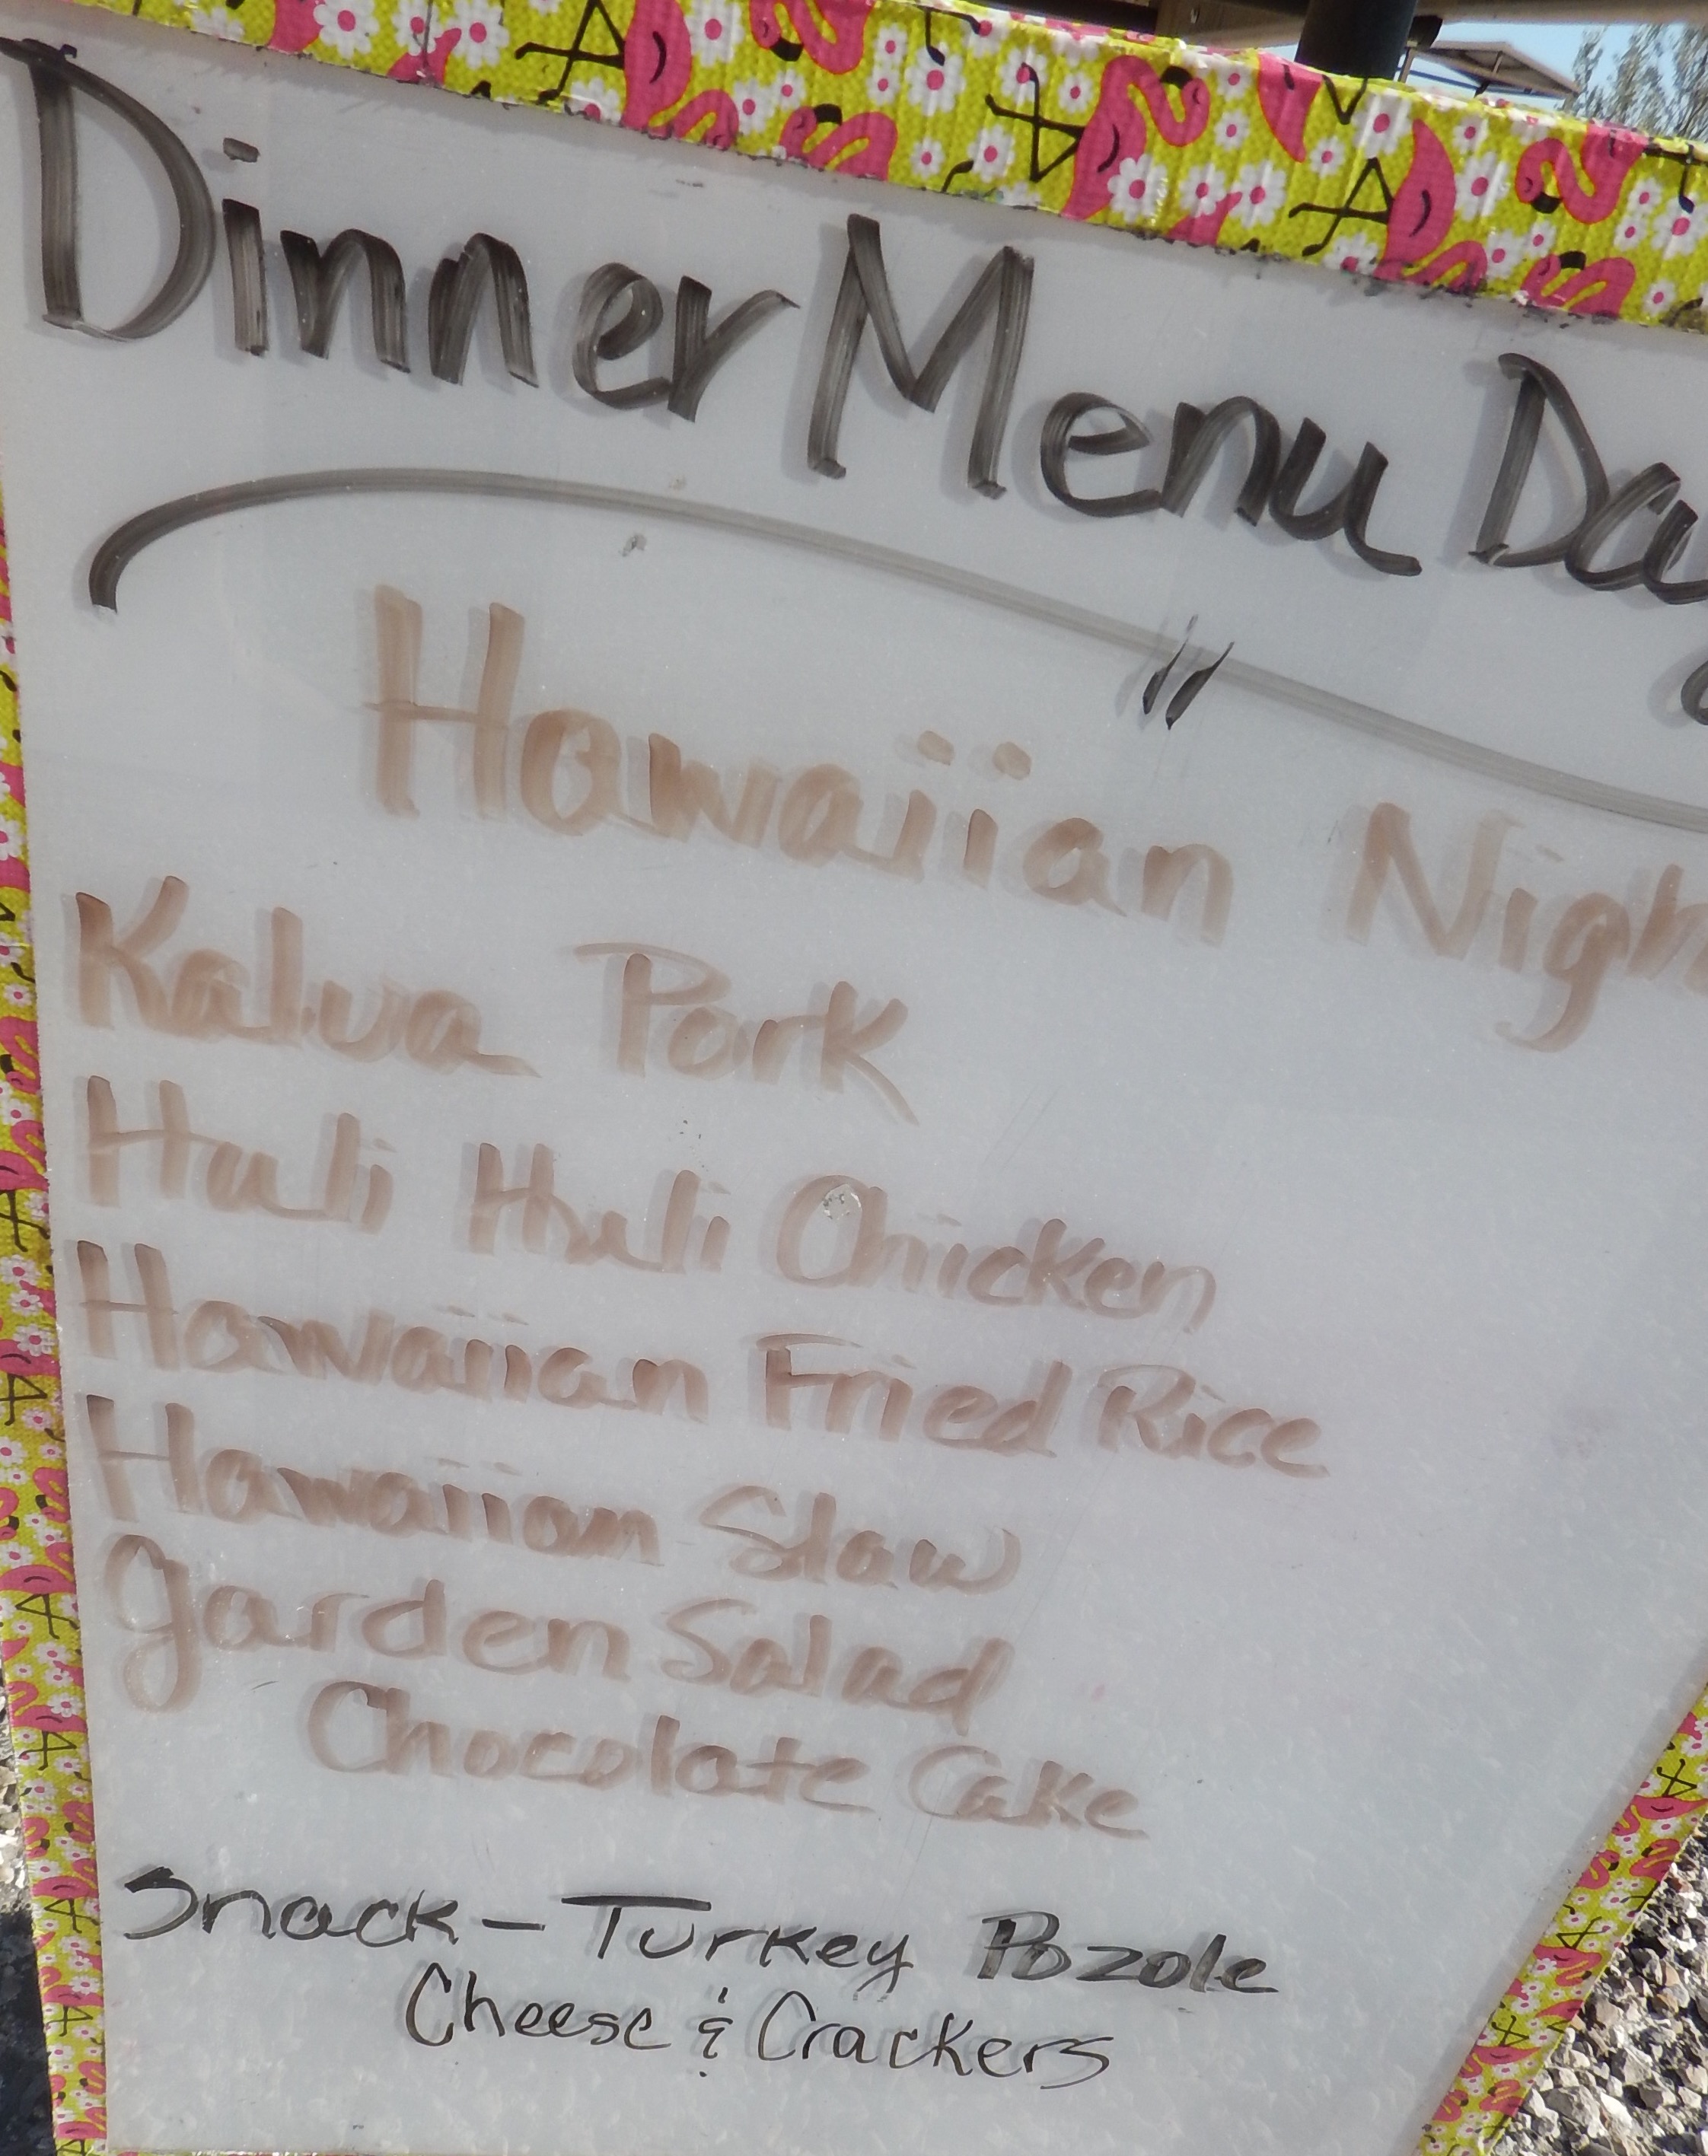 Dinner Menu Day
Hawaiian Nigh
Kalua Pork
Huli Huli Chicken
Hawaiian Fried Rice
Hawaiian Slaw
Garden Salad
Chocolate Cake
Snack - Turkey Pozole
Cheese & Crackers